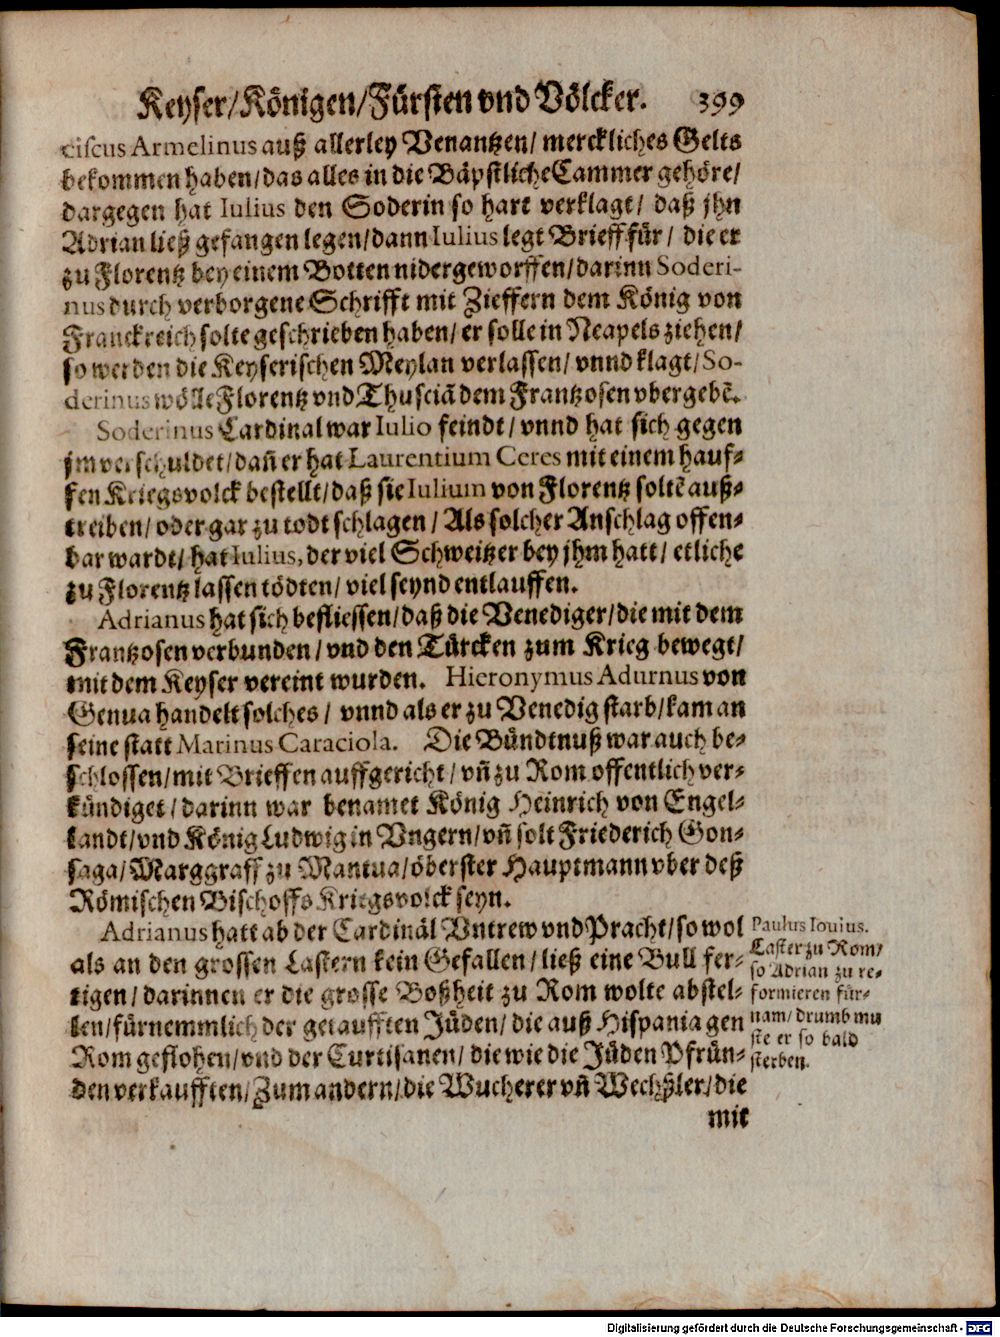 Keyser/Königen/Fürsten vnd Völcker. 399
ciscus Armelinus auß allerley Venantzen/ merckliches Gelts
bekommen haben/das alles in die Bäpstliche Cammer gehöre/
dargegen hat Iulius den Soderin so hart verklagt/ daß jhn
Adrian ließ gefangen legen/dann Iulius legt Brieff für/ die er
zu Florentz bey einem Botten nidergeworffen/darinn Soderi-
nus durch verborgene Schrifft mit Zieffern dem König von
Franckreich solte geschrieben haben/ er solle in Neapels ziehen/
so werden die Keyserischen Meylan verlassen/ vnnd klagt/ So-
derinus wölle Florentz vnd Thusciã dem Frantzosen vbergebẽ.
Soderinus Cardinal war Iulio feindt/ vnnd hat sich gegen
jm verschuldet/dañ er hat Laurentium Ceres mit einem hauf-
fen Kriegsvolck bestellt/daß sie Iulium von Florentz soltẽ auß-
treiben/ oder gar zu todt schlagen/ Als solcher Anschlag offen-
bar wardt/ hat Iulius, der viel Schweitzer bey jhm hatt/ etliche
zu Florentz lassen tödten/ viel seynd entlauffen.
Adrianus hat sich befliessen/daß die Venediger/die mit dem
Frantzosen verbunden/ vnd den Türcken zum Krieg bewegt/
mit dem Keyser vereint wurden. Hieronymus Adurnus von
Genua handelt solches/ vnnd als er zu Venedig starb/kam an
seine statt Marinus Caraciola. Die Bündtnuß war auch be-
schlossen/mit Brieffen auffgericht/ vñ zu Rom offentlich ver-
kündiget/darinn war benamet König Heinrich von Engel-
landt/vnd König Ludwig in Vngern/vñ solt Friederich Gon-
saga/Marggraff zu Mantua/öberster Hauptmann vber deß
Römischen Bischoffs Kriegsvolck seyn.
Adrianus hatt ab der Cardinäl Vntrew vnd Pracht/so wol
als an den grossen Lastern kein Gefallen/ließ eine Bull fer-
tigen/darinnen er die grosse Boßheit zu Rom wolte abstel-
len/fürnemmlich der getaufften Jüden/ die auß Hispania gen
Rom geflohen/vnd der Curtisanen/ die wie die Jüden Pfrün-
den verkaufften/Zum andern/die Wucherer vñ Wechßler/die
mit
Paulus Iouius.
Laster zu Rom/
so Adrian zu re-
formieren für-
nam/ drumb mu
ste er so bald
sterben.
Digitalisierung gefördert durch die Deutsche Forschungsgemeinschaft - DFG